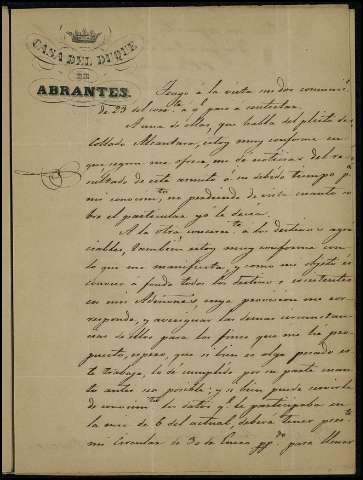 CASA DEL DUQUE
DE
ABRANTES.
Tengo á la vista sus dos comunic.s
de 23 del corr.te á q.e paso á contestar.
A una de ellas, que habla del pleito de
Collado Alcantara, estoy muy conforme en
que segun me ofrece, me dé noticias del re-
sultado de este asunto á su debido tiempo p.a
mi conocim.to, no perdiendo de vista cuanto so-
bre el particular yó le decia.
A la otra concern.te á los destinos agen-
ciales, tambien estoy muy conforme con
lo que me manifiesta, y como mi objeto és
conocer á fondo todos los destinos existentes
en esas Admones, cuya provision me cor-
responde, y averiguar las demas circunstan-
cias de ellos para los fines que me he pro-
puesto, espero, que si bien es algo pesado es-
te trabajo, lo dé cumplido por su parte cuan-
to antes sea posible; y si bien puede servirle
de conocim.to los datos q.e le participaba en
la mia de 6 del actual, deberá tener pres.te
mi Circular de 30 de Enero pp.do para llenar